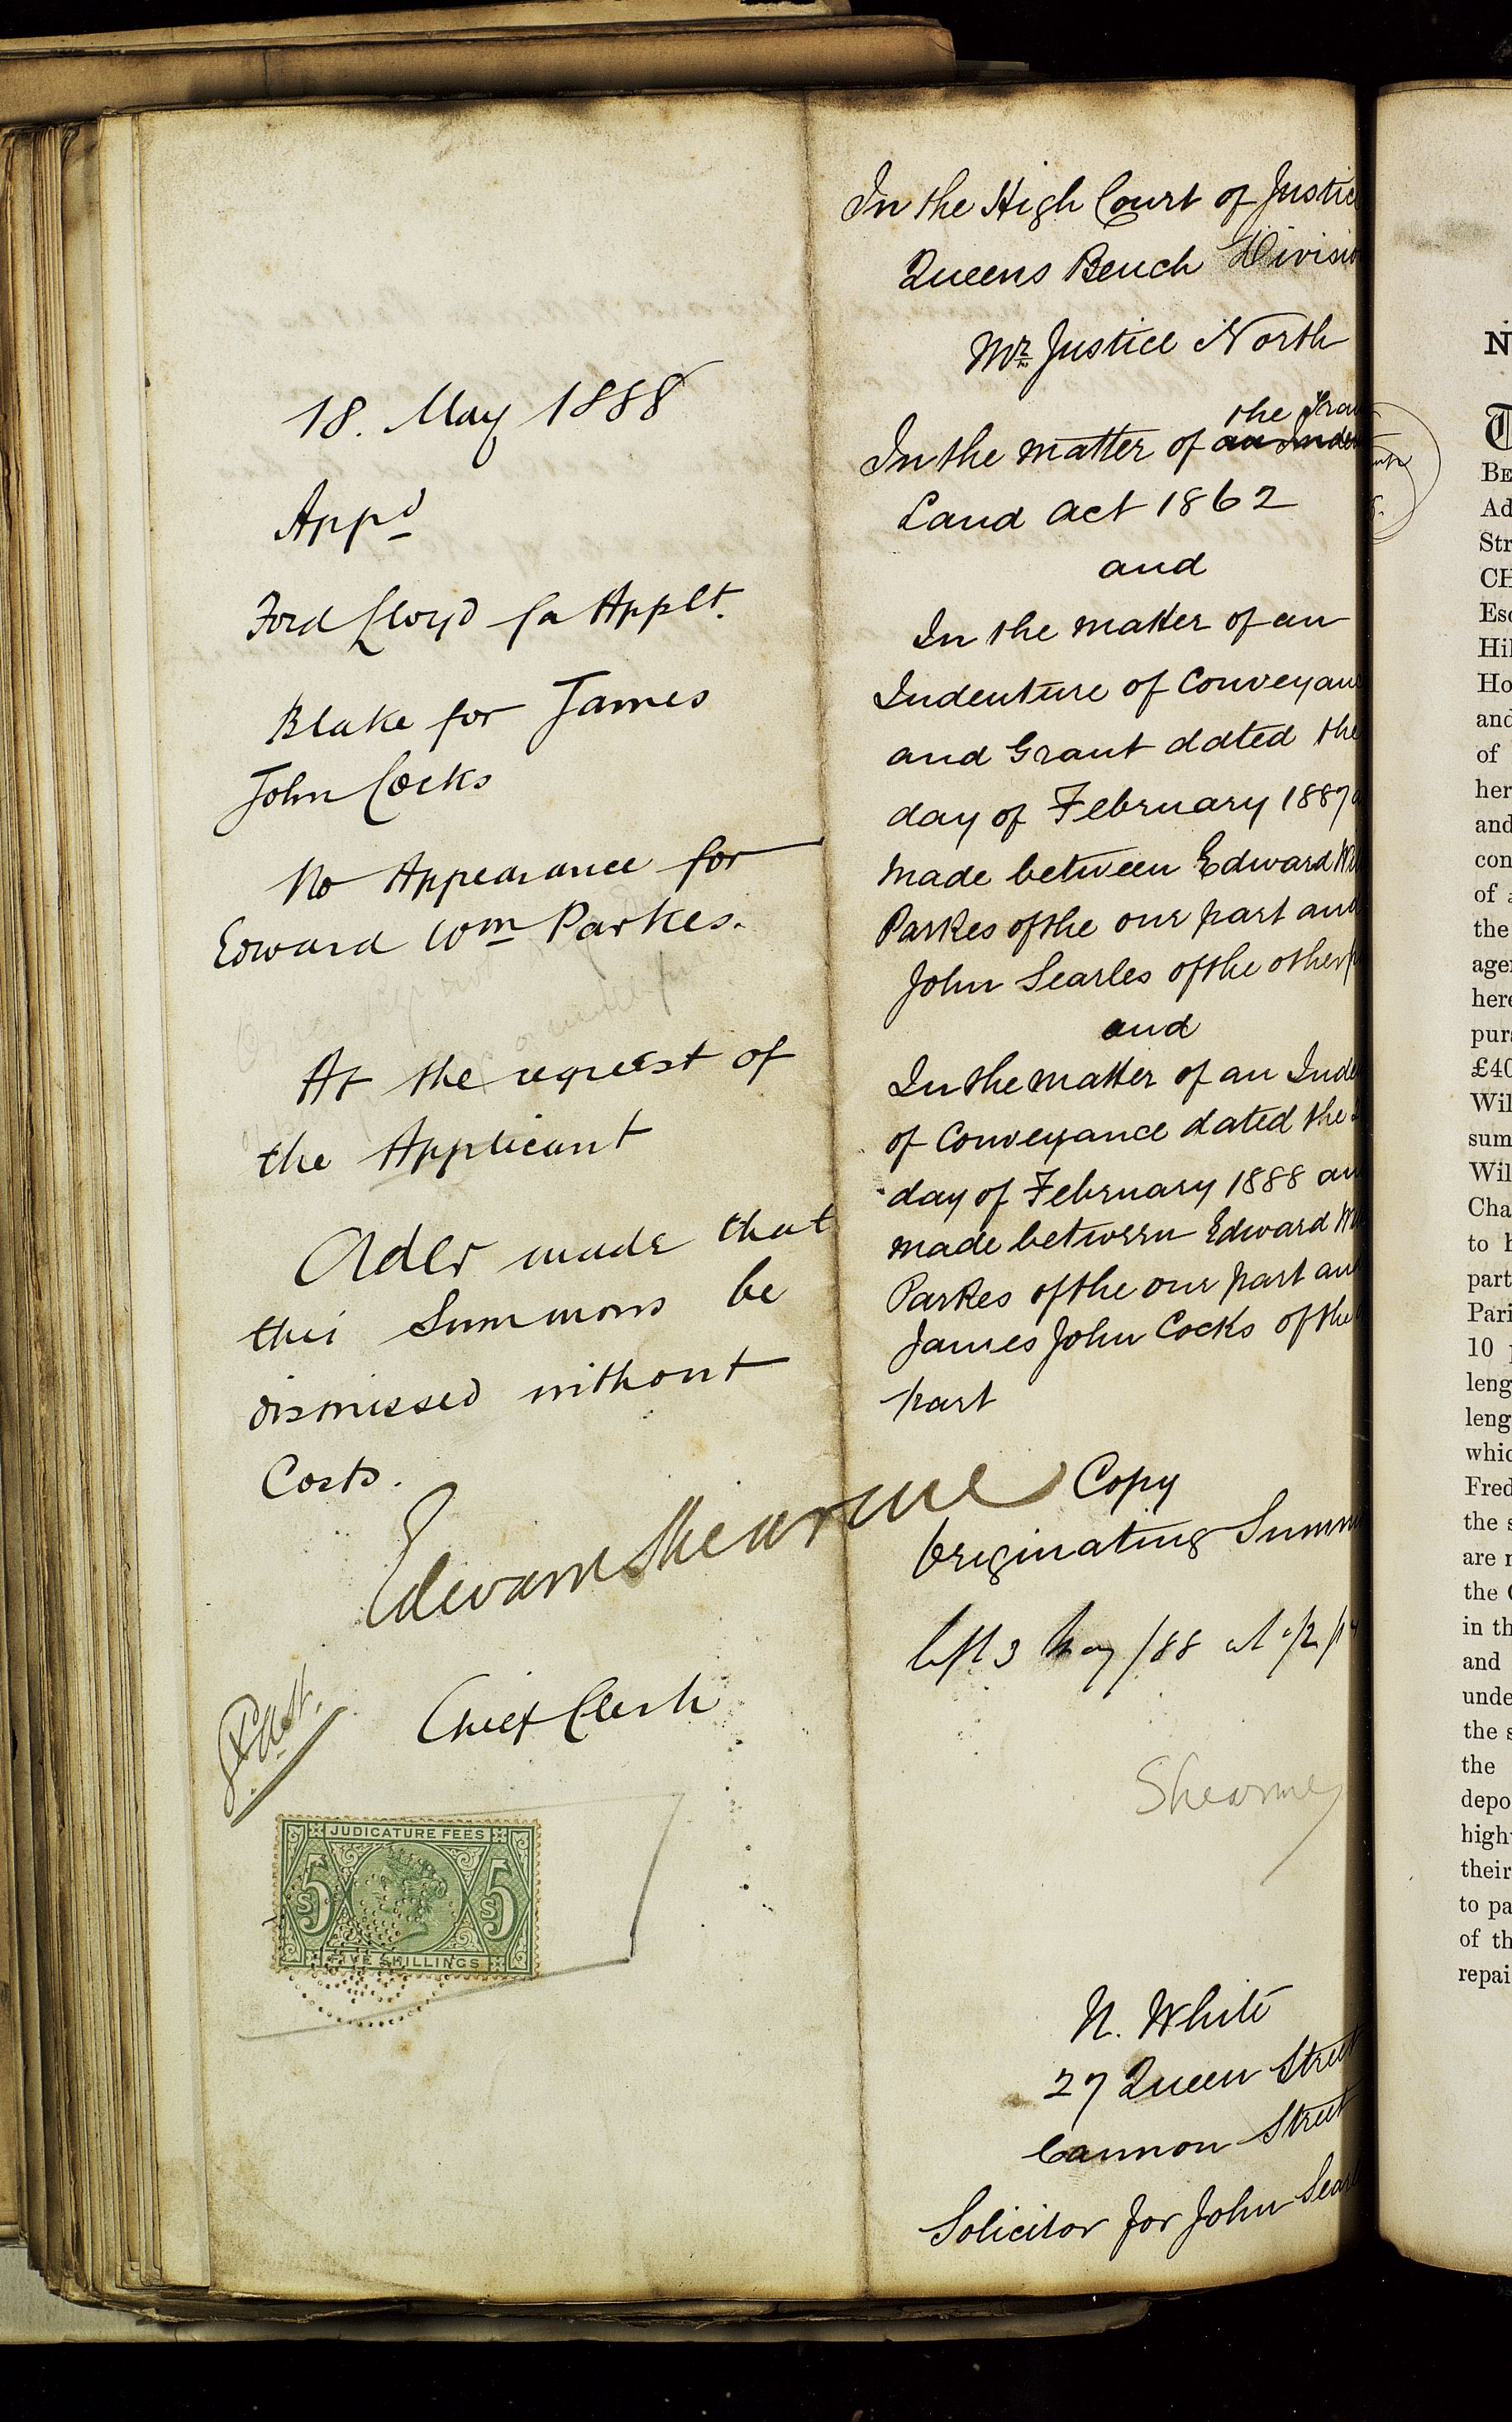 18. May 1888
Appd
Ford Lloyd for Applt.
Blake for James
John Cocks
No Appearance for
Edward Wm Parkes.
At the request of
the Applicant
Order made that
this Summons be
dismissed without
Costs.
Edward Shearme
Chief Clerk
JUDICATURE FEES
5s 5s
FIVE SHILLINGS
In the High Court of Justic
Queens Bench Divisio
Mr Justice North
the Tran
In the matter of an Inden
Land Act 1862
and
In the matter of an
Indenture of Conveyanc
and Grant dated the
day of February 1887 a
made between Edward Wil
Parkes of the one part and
John Searles of the other p
and
In the matter of an Inde
of Conveyance dated the
day of February 1888 an
made between Edward Wil
Parkes of the one part and
James John Cocks of the
part
Copy
Originating Summ
left 3 May /88 at
Shearme
N. White
27 Queen Street
Cannon Street
Solicitor for John Searl
N
T
BE
Ad
Str
CH
Esq
Hil
Ho
and
of
her
and
con
of a
the
age
here
pur
£40
Wil
sum
Wil
Cha
to h
part
Pari
10
leng
leng
whic
Fred
the s
are r
the C
in th
and
unde
the s
the
depo
high
their
to pa
of th
repai